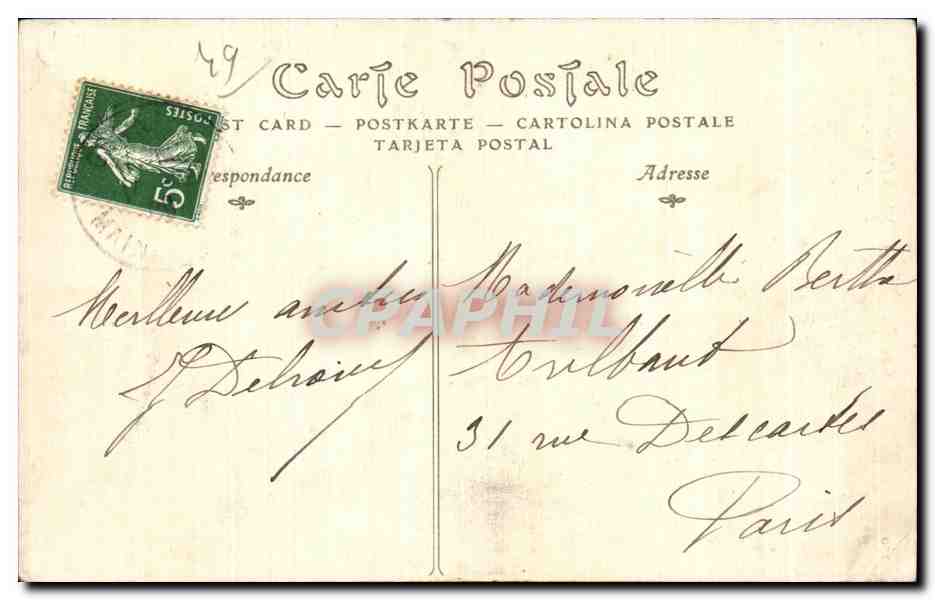 49
Carte Postale
ST CARD — POSTKARTE — CARTOLINA POSTALE
TARJETA POSTAL
REPUBLIQUE FRANÇAISE
POSTES
5c
MAIN
respondance
Adresse
Meilleure amitiés
J Delrouef
Mademoiselle Berthe
31 rue Descartes
Paris
CPAPHIL